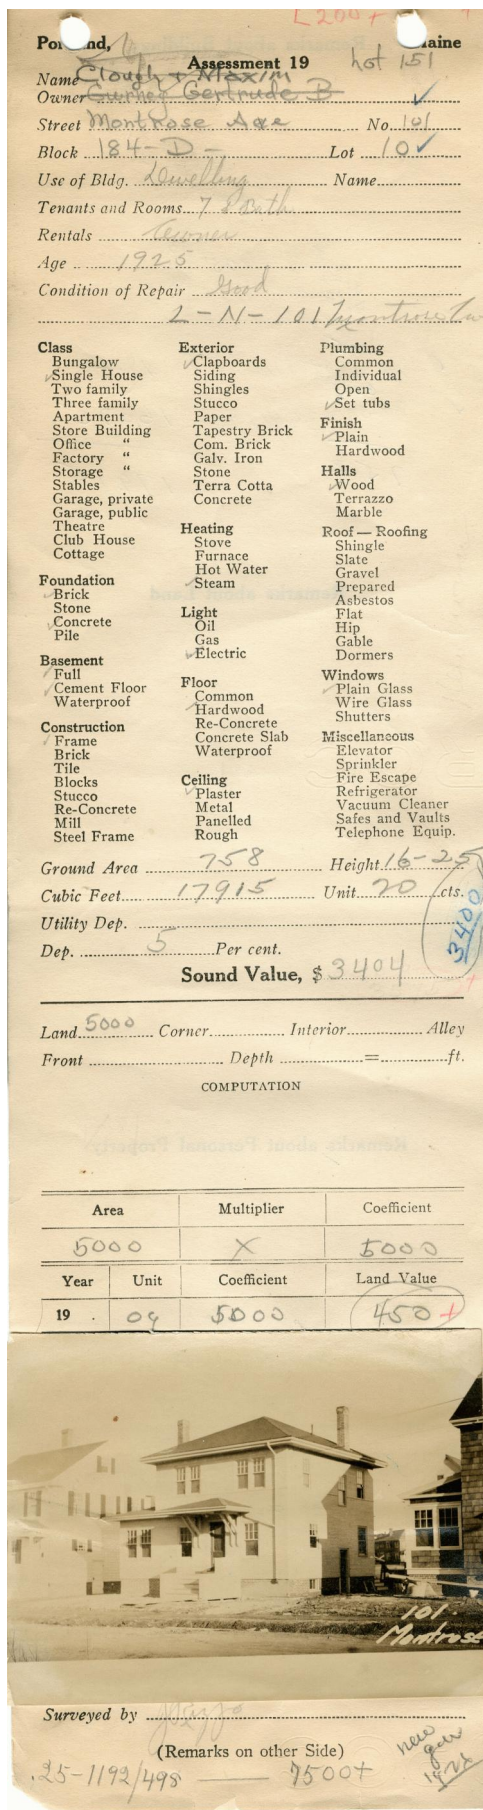 L 200 +
Portland, Maine
Assessment 19
Lot 151
Name Clough & Maxim
Owner Gertrude B
Street Montrose Ave No. 101
Block 184-D- Lot 10
Use of Bldg. Dwelling Name
Tenants and Rooms 7 & Bath
Rentals Owner
Age 1925
Condition of Repair Good
L-N-101 Montrose
Class
Bungalow
Single House
Two family
Three family
Apartment
Store Building
Office "
Factory "
Storage "
Stables
Garage, private
Garage, public
Theatre
Club House
Cottage
Foundation
Brick
Stone
Concrete
Pile
Basement
Full
Cement Floor
Waterproof
Construction
Frame
Brick
Tile
Blocks
Stucco
Re-Concrete
Mill
Steel Frame
Exterior
Clapboards
Siding
Shingles
Stucco
Paper
Tapestry Brick
Com. Brick
Galv. Iron
Stone
Terra Cotta
Concrete
Heating
Stove
Furnace
Hot Water
Steam
Light
Oil
Gas
Electric
Floor
Common
Hardwood
Re-Concrete
Concrete Slab
Waterproof
Ceiling
Plaster
Metal
Panelled
Rough
Plumbing
Common
Individual
Open
Set tubs
Finish
Plain
Hardwood
Halls
Wood
Terrazzo
Marble
Roof — Roofing
Shingle
Slate
Gravel
Prepared
Asbestos
Flat
Hip
Gable
Dormers
Windows
Plain Glass
Wire Glass
Shutters
Miscellaneous
Elevator
Sprinkler
Fire Escape
Refrigerator
Vacuum Cleaner
Safes and Vaults
Telephone Equip.
Ground Area 758 Height 16-25
Cubic Feet 17915 Unit 20 cts.
Utility Dep.
3400
Dep. 5 Per cent.
Sound Value, $ 3404
Land 5000 Corner Interior Alley
Front Depth = ft.
COMPUTATION
Area Multiplier Coefficient
5000 X 5000
Year Unit Coefficient Land Value
19 . 09 5000 450 +
101
Montrose
Surveyed by
(Remarks on other Side)
.25-1192/498 — 7500+
new